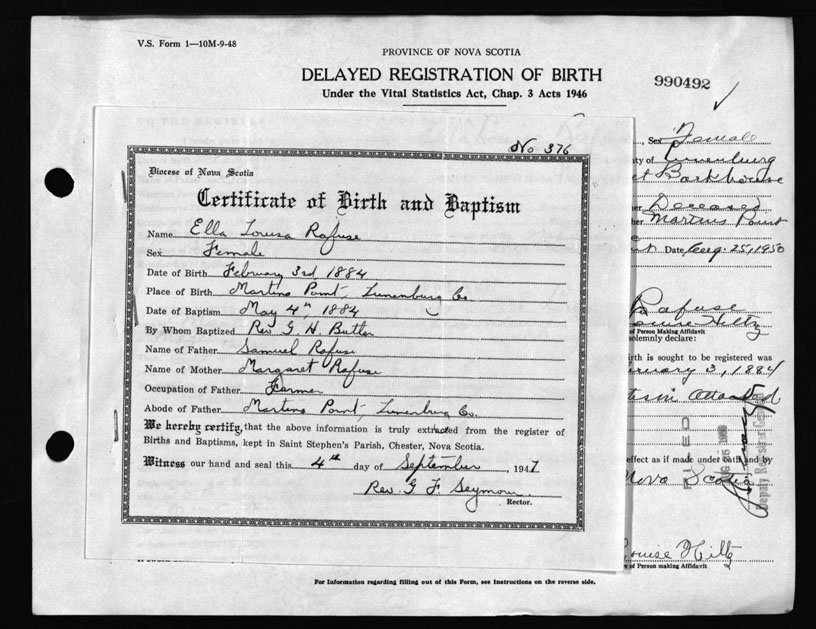 V.S. Form 1—10M-9-48
PROVINCE OF NOVA SCOTIA
DELAYED REGISTRATION OF BIRTH
Under the Vital Statistics Act, Chap. 3 Acts 1946
990492
No 376
Diocese of Nova Scotia
Certificate of Birth and Baptism
Name Ella Louisa Rafuse
Sex Female
Date of Birth February 3rd 1884
Place of Birth Martins Point, Lunenburg Co.
Date of Baptism May 4th, 1884
By Whom Baptized Rev G H Butler
Name of Father Samuel Rafuse
Name of Mother Margaret Rafuse
Occupation of Father Farmer
Abode of Father Martins Point, Lunenburg Co.
We hereby certify, that the above information is truly extracted from the register of
Births and Baptisms, kept in Saint Stephen's Parish, Chester, Nova Scotia.
Witness our hand and seal this 4th day of September, 1947
Rev. G F Seymour
Rector.
, Sex Female
ty of Lunenburg
et Barkhouse
er Deceased
her Martins Point
Date Aug. 25, 1950
Rafuse
Louise Hiltz
of Person Making Affidavit
solemnly declare:
irth is sought to be registered was
ebruary 3, 1884
tism attached
effect as if made under oath and by
Nova Scotia
FILED
Deputy Registrar General
Louise Hiltz
e of Person making Affidavit
For Information regarding filling out of this Form, see Instructions on the reverse side.